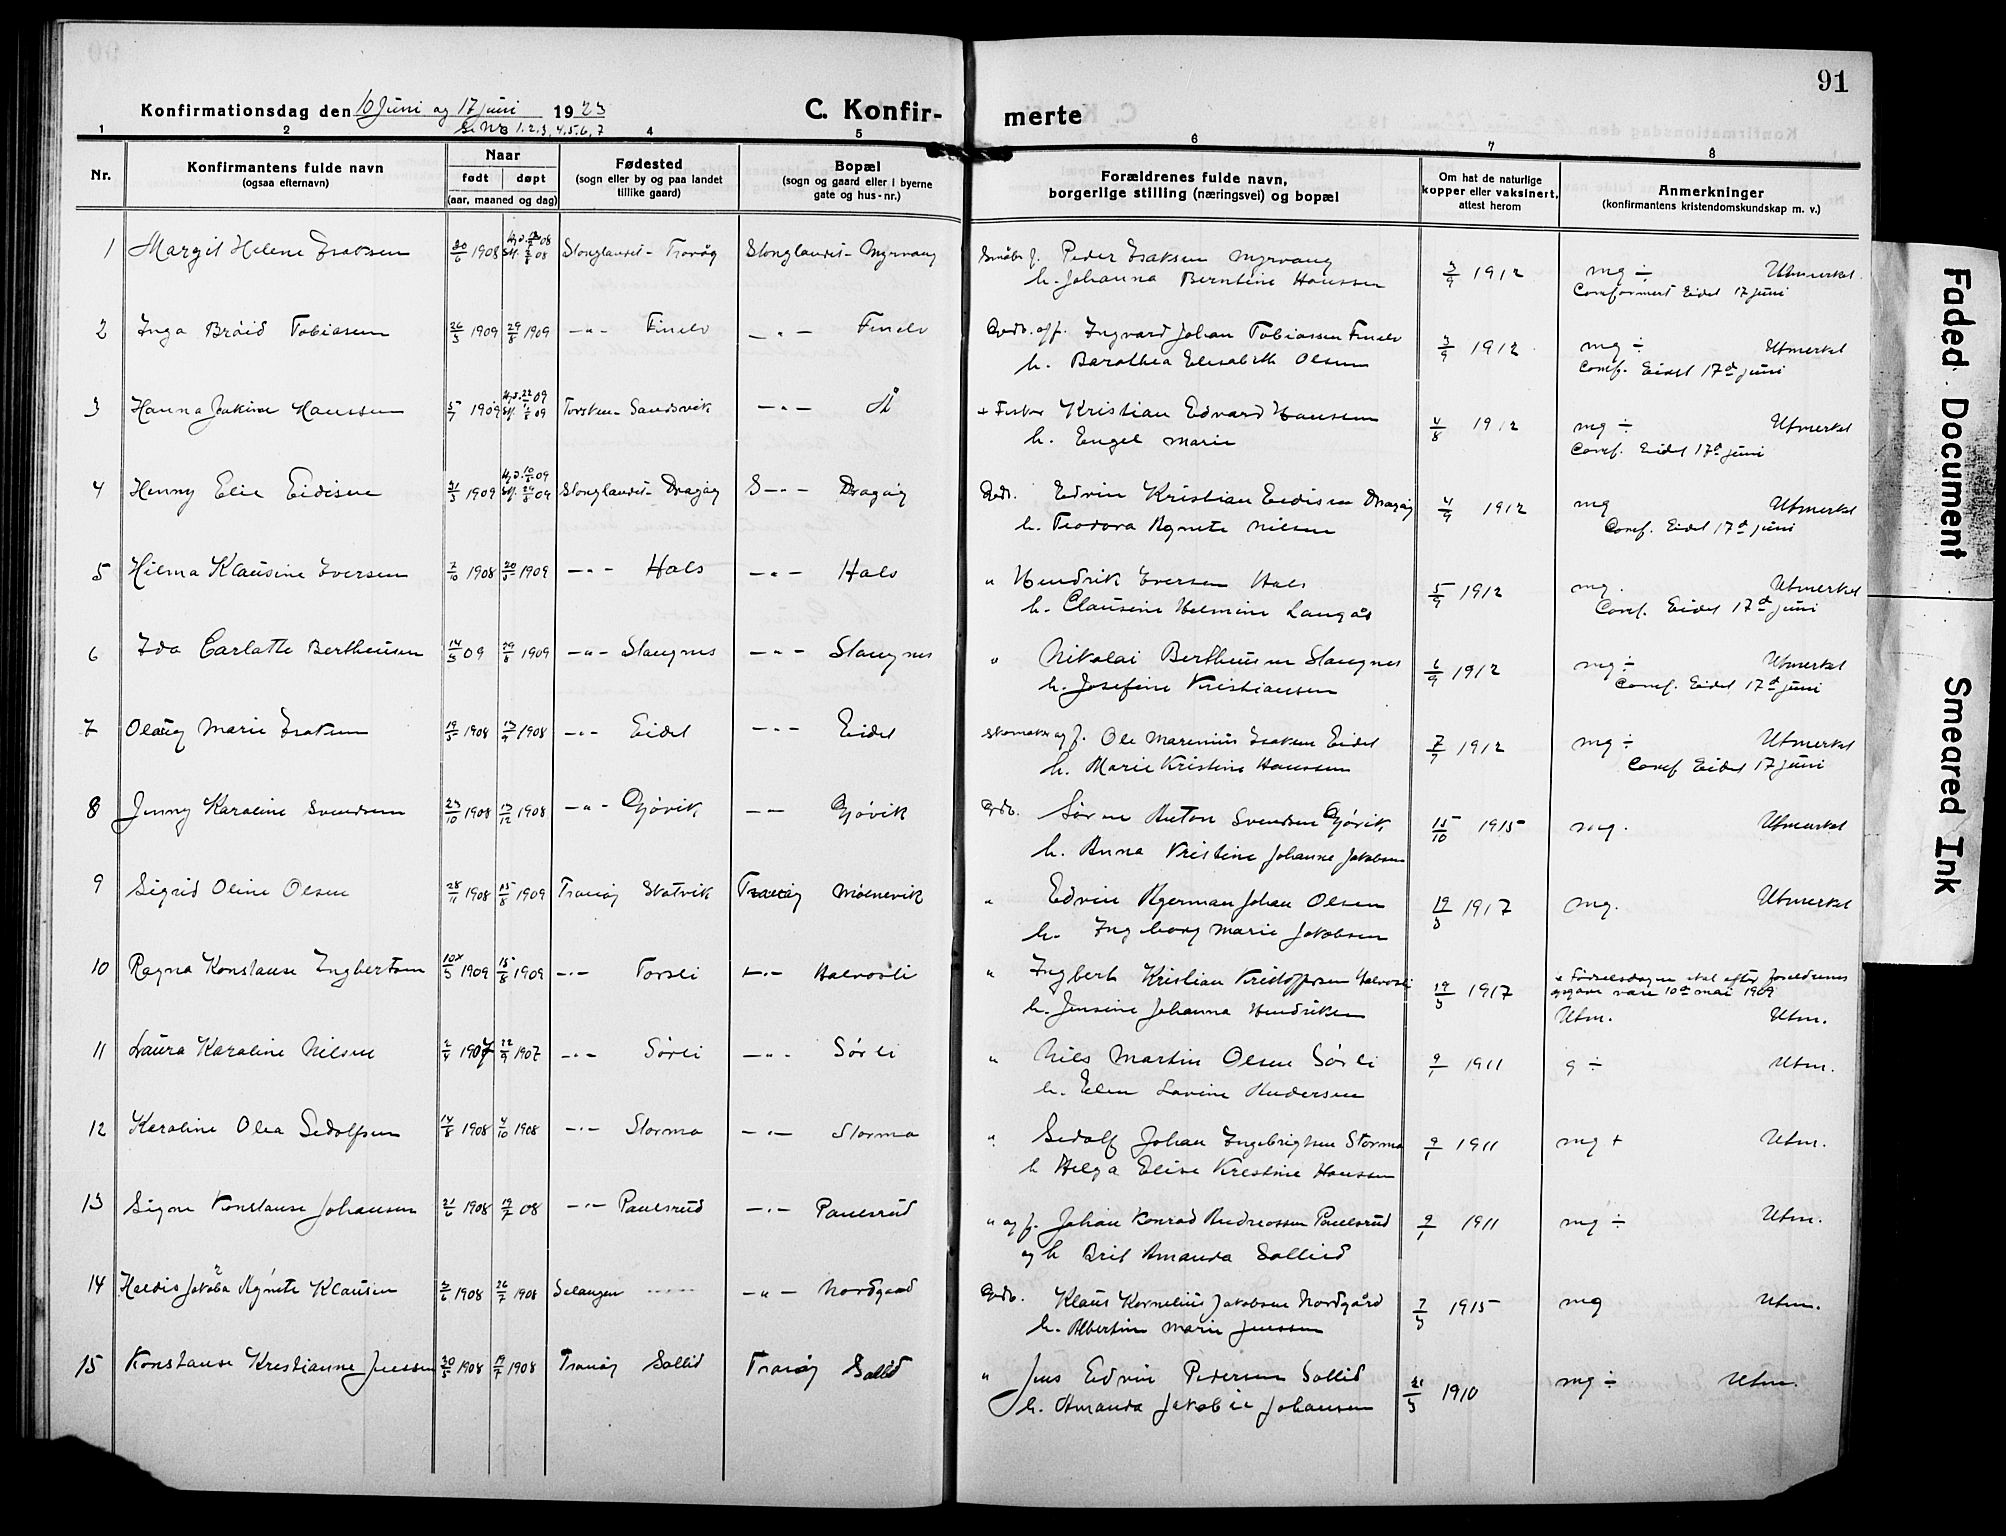 91
Konfirmationsdag den 10 Juni og 17 juni 1923
Se Nr 1.2.3.4.5.6.7
C. Konfir- merte
1 2 3 4 5 6 7 8
Nr.
Konfirmantens fulde navn
(ogsaa efternavn)
Naar
født døpt
(aar, maaned og dag)
Fødested
(sogn eller by og paa landet
tillike gaard)
Bopæl
(sogn og gaard eller i byerne
gate og hus-nr.)
Forældrenes fulde navn,
borgerlige stilling (næringsvei) og bopæl
Om hat de naturlige
kopper eller vaksinert,
attest herom
Anmerkninger
(konfirmantens kristendomskundskap m. v.)
1 Margit Helene Isaksen 1908 Hjd. 08 Stf. 08 Stonglandet - Tranøy Stonglandet - Myrvang Småbr. f. Peder Isaksen Myrvang 3/9 1912 mg ÷ Utmerket
h. Johanna Berntine Hanssen Comformert Eidet 17 juni
2 Inga Bråid Tobiasen 26/5 1909 29/8 1909 -"- Finelv -"- Finelv Grdb. og f. Ingvard Johan Tobiassen Finelv 3/9 1912 mg ÷ Utmerket
h. Barathea Elisabeth Olsen Comf. Eidet 17d juni
3 Hanna Joakine Hanssen 5/7 1909 Hjd. 22 09 Stf. 09 Torsken - Sandsvik -"- Å + Fisker Kristian Edvard Hanssen 4/8 1912 mg ÷ Utmerket
h. Engel Marie Comf. Eidet 17d juni
4 Henny Elie Eidisen 31/3 1909 Hjd. 10 09 Stf. 09 Stonglandet - Dragøy S -"- Dragøy Grdb. Edvin Kristian Eidisen Dragøy 4/9 1912 mg Utmerket
h. Teodora Agnete Nilsen Comf. Eidet 17d juni
5 Hilma Klausine Iversen 7/10 1908 20/5 1909 -"- Hals -"- Hals " Hendrik Iversen Hals 5/9 1912 mg. Utmerket
h. Clausine Helmine Langås Comf. Eidet 17d juni
6 Ida Carlatte Bertheusen 14/5 09 29/8 1909 -"- Stangnes -"- Stangnes " Nikolai Bertheusen Stangnes 6/9 1912 mg ÷ Utmerket
h. Josefine Kristiansen Comf. Eidet 17d juni
7 Olaug Marie Isaksen 19/5 1908 13/9 1908 -"- Eidet -"- Eidet Skomaker og f. Ole Marenius Isaksen Eidet 7/9 1912 mg ÷ Utmerket
h. Marie Kristine Hanssen Comf Eidet 17 juni
8 Jenny Karoline Svendsen 23/10 1908 13/12 1908 -"- Gjövik -"- Gjövik Grdb. Søren Anton Svendsen Gjövik 15/10 1915 mg. Utmerket
h. Anna Kristine Johanne Jakobsen
9 Sigrid Oline Olsen 28/11 1908 15/8 1909 Tranöy Skatvik Tranöy Mølnevik " Edvin Agerman Johan Olsen 19/3 1917 mg. Utmerket
h. Ingeborg Marie Jakobsen
10 Ragna Konstanse Ingbertsen 10x/5 1909 15/8 1909 -"- Torsli -"- Halvorli " Ingbert Kristian Kristoffersen Halvorli 19/3 1917 x Fødselsdagen skal efter foreldrenes
opgave være 10de mai 1909
h. Jensine Johanna Hendriksen Utm. Utm.
11 Laura Karoline Nilsen 2/4 1907 22/9 1907 -"- Sørli -"- Sørli " Nils Martin Olsen Sørli 9/1 1911 g ÷ Utm.
h. Elen Lovine Andersen
12 Karoline Olea Sedolfsen 14/8 1908 4/10 1908 -"- Stormo -"- Stormo " Sedolf Johan Ingebrigtsen Stormo 9/1 1911 mg + Utm.
h Helga Elise Kristine Hansen
13 Signe Konstanse Johansen 21/6 1908 19/7 08 -"- Paulsrud -"- Paulsrud " og f. Johan Konrad Andreassen Paulsrud 9/1 1911 mg ÷ Utm.
og h Brit Amanda Sollied
14 Haldis Jakoba Agnete Klausen 3/6 1908 26/7 1908 Salangen -"- Nordgaard Grdb. Klaus Kornelius Jakobsen Nordgård 7/5 1915 mg Utm.
h. Albertine Marie Jenssen
15 Konstanse Krestianne Jenssen 30/5 1908 19/7 1908 Tranöy Sollid Tranöy Sollid " Jens Edvin Pedersen Sollid 21/5 1910 mg ÷ Utm.
h. Amanda Jakobie Johansen
Faded Document Smeared Ink